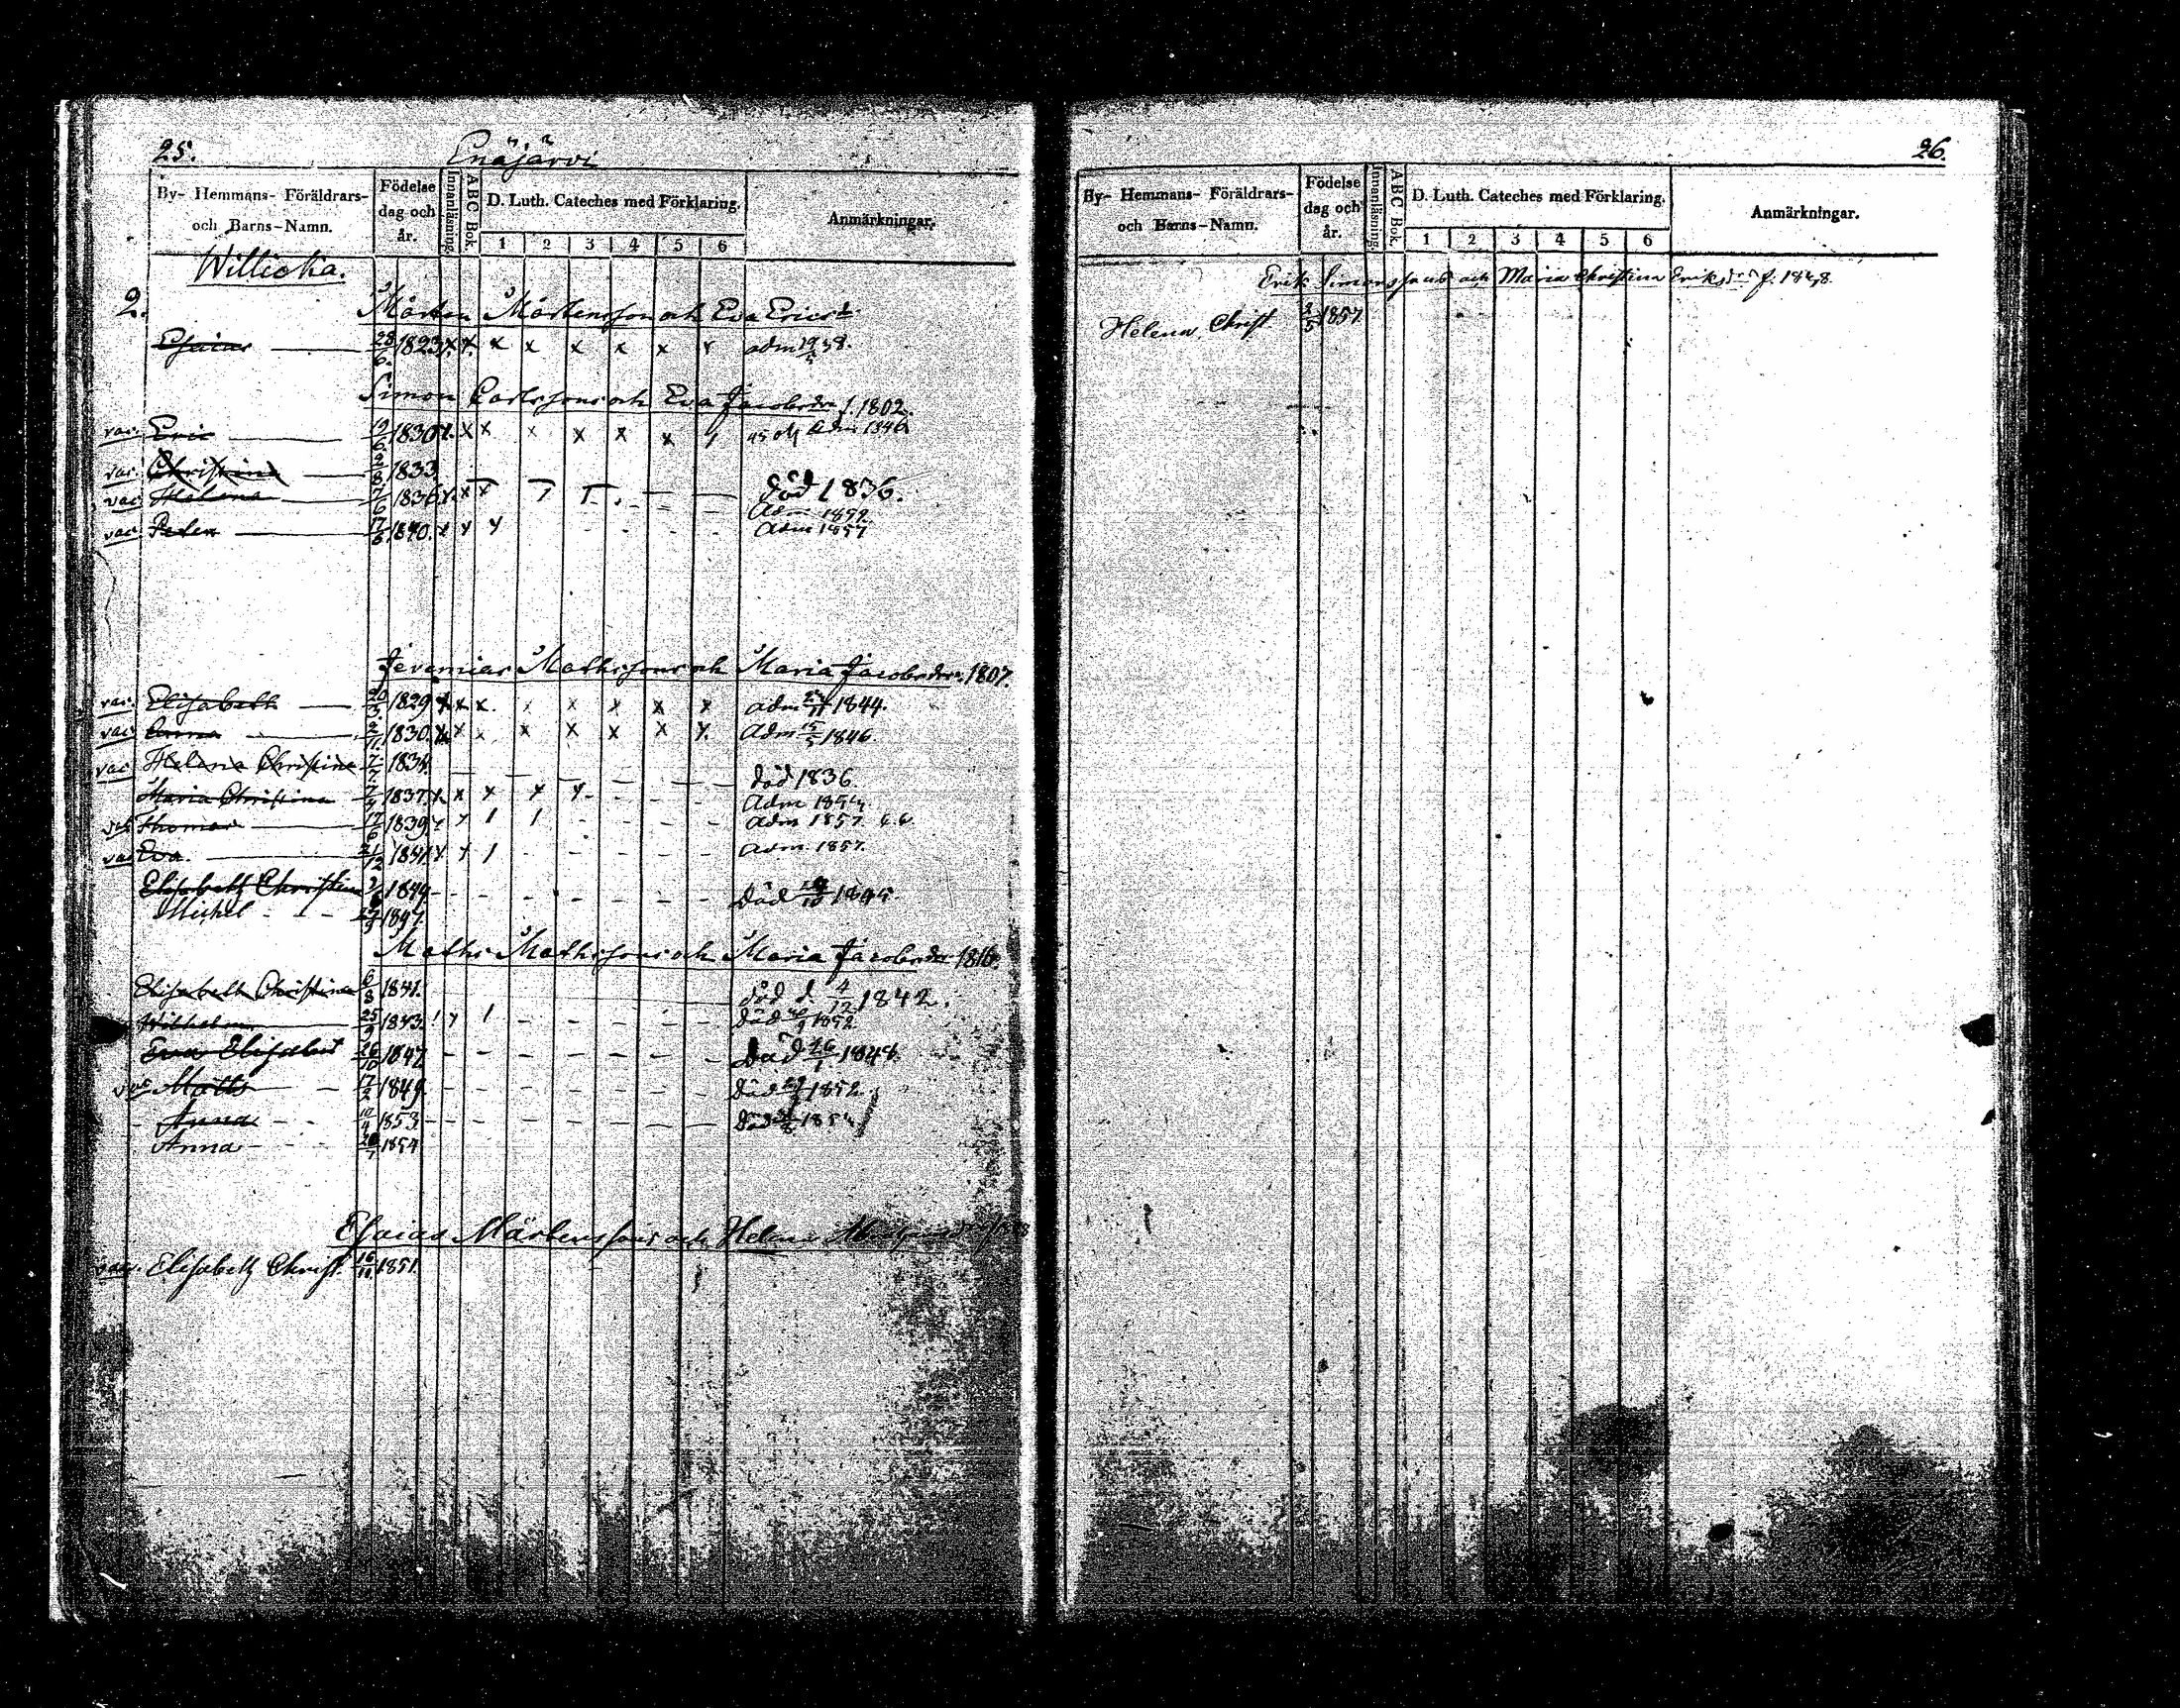 25.
Enäjärvi
By- Hemmans- Föräldrars- och Barns-Namn.
Födelse dag och år.
Innanläsning.
ABC Bok.
D. Luth. Cateches med Förklaring.
1 2 3 4 5 6
Anmärkningar.
Willicka.
2. Mårten Mårtensson och Eva Ericsdr
Esaias 28/6 1823 x x x x x x x x adm 38.
Simon Carlssons och Eva Jacobsdr f. 1802.
vac. Eric 19/6 1830 x x x x x x x Adm 1846
vac. Christina 2/8 1833 död 1836.
vac. Helena 7/6 1836 x x x Adm 1852
vac. Peter 17/6 1840. x x x Adm 1857
Jeremias Mathssons och Maria Jacobsdr 1807.
vac. Elisabeth 1829 x x x x x x x x adm 1844.
vac. Anna 1830. x x x x x x Adm 15/5 1846.
vac Helena Christina 1834. död 1836.
Maria Christina 1837 x x x x x Adm
vac Thomas 17/6 1839 Adm 1857.
vac Eva. 21/12 1841 x x 1 Adm 1857.
Elisabeth Christina 1844 Död
Michel 27/9 1847.
Maths Mathssons och Maria Jacobsdr 1816.
Elisabeth Christina 6/8 1841. död d. 4/12 1842.
Wilhelm 25/9 1843. Död 1852.
Eva Elisabet 26/10 1847. Död 26/1 1848
vac Maths 17/2 1849. Död 1852.
Anna 10/4 1853 Död 1854
Anna 1854
Esaias Mårtenssons och Helena
vac. Elisabeth Christ. 16/11 1851.
26.
By- Hemmans- Föräldrars- och Barns-Namn.
Födelse dag och år.
Innanläsning.
ABC Bok.
D. Luth. Cateches med Förklaring.
1 2 3 4 5 6
Anmärkningar.
Erik Simonssons och Maria Christina Eriksdr f.
Helena Christ. 3/5 1857